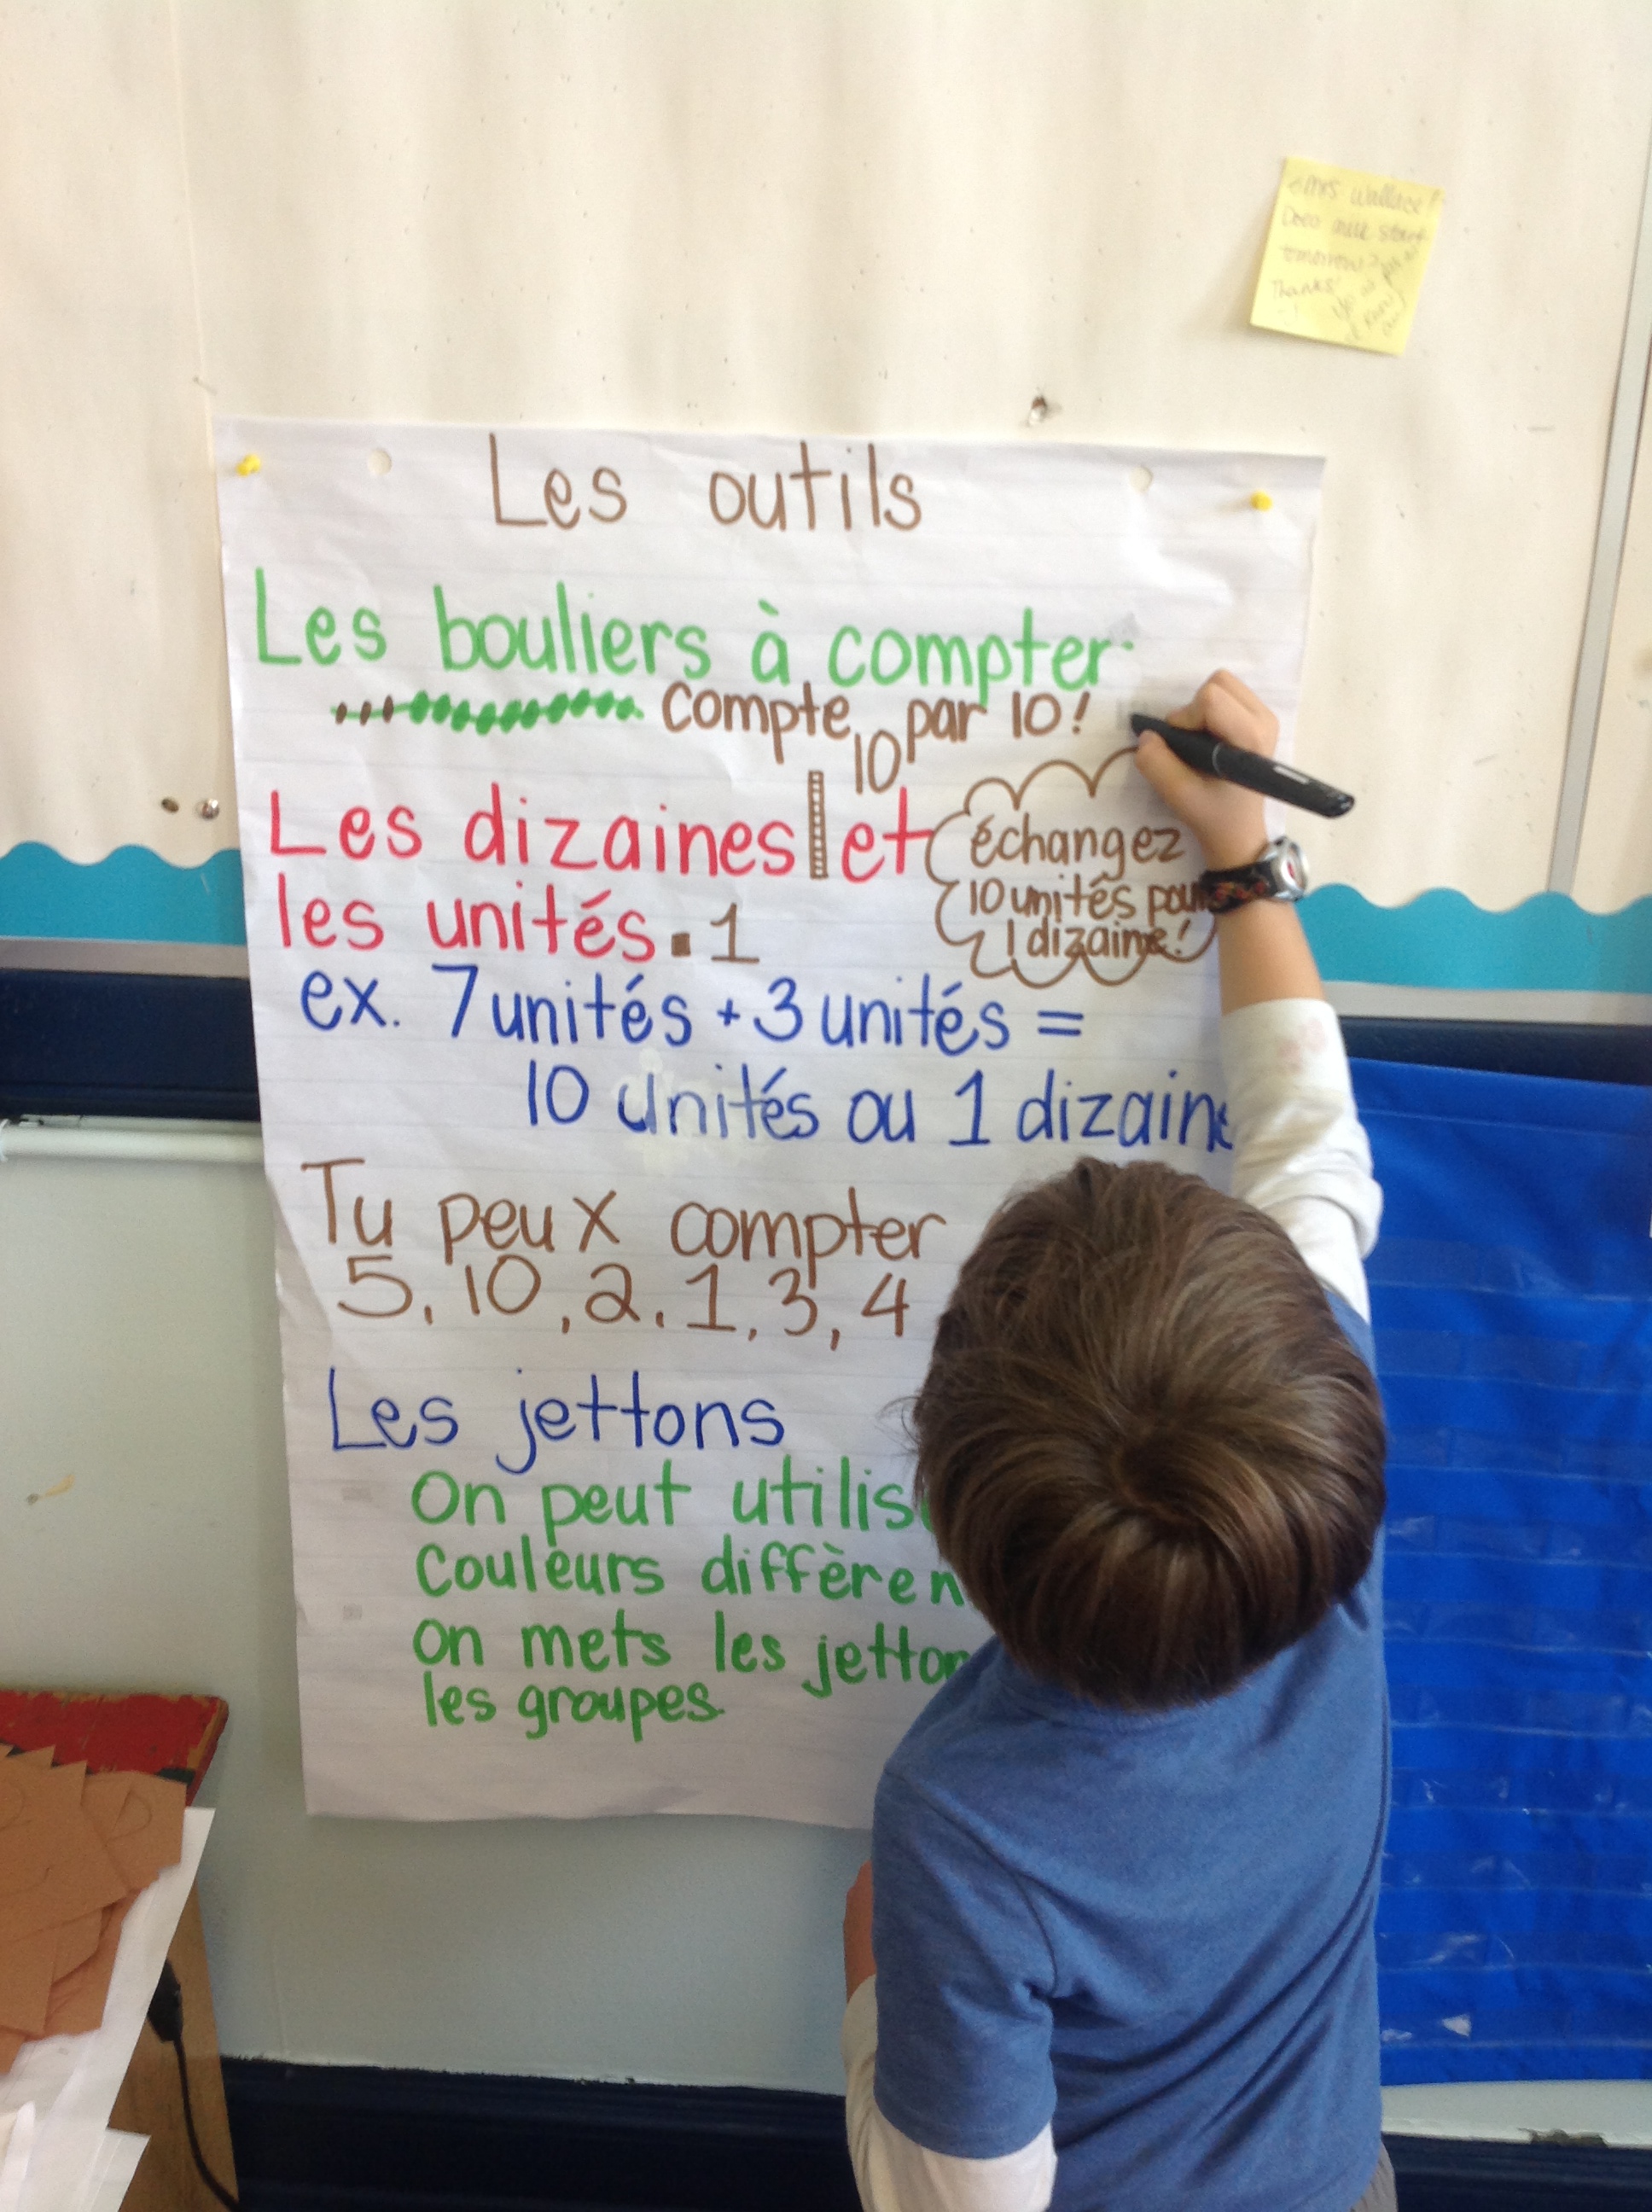 Mrs Wallace!
Does milk start
tomorrow?
Thanks
Les outils
Les bouliers à compter:
Compte par 10!
10
Les dizaines et
les unités 1
échangez
10 unités pour
1 dizaine!
ex. 7 unités + 3 unités =
10 unités ou 1 dizaine
Tu peux compter
5, 10, 2, 1, 3, 4
Les jettons
On peut utilis
Couleurs différen
On mets les jetton
les groupes